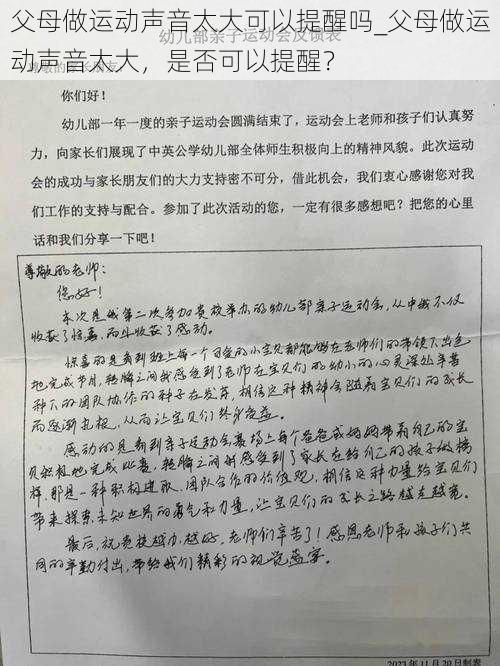 父母做运动声音太大可以提醒吗_父母做运
动声音太大，是否可以提醒？
幼儿部亲子运动会反馈表
尊敬的家长朋友：
你们好！
幼儿部一年一度的亲子运动会圆满结束了，运动会上老师和孩子们认真努
力，向家长们展现了中英公学幼儿部全体师生积极向上的精神风貌。此次运动
会的成功与家长朋友们的大力支持密不可分，借此机会，我们衷心感谢您对我
们工作的支持与配合。参加了此次活动的您，一定有很多感想吧？把您的心里
话和我们分享一下吧！
尊敬的老师：
您好！
本次是我第二次参加贵校举办的幼儿部亲子运动会，从中我不仅
收获了惊喜，而且收获了感动。
惊喜的是看到班上每一个可爱的小宝贝都能够在老师们的带领下出色
地完成节目，转瞬之间我感受到了老师在宝贝们的幼小的心灵深处辛苦
种下的团队协作的种子在发芽，相信这种精神会随着宝贝们的成长
而逐渐扎根，从而让宝贝们终身受益。
感动的是看到亲子运动会赛场上每个爸爸或妈妈带着自己的宝
贝积极地完成比赛，转瞬之间我感受到了家长在给自己的孩子做榜
样，那是一种积极进取、团队合作的价值观，相信这种力量给宝贝们
带来探索未知世界的勇气和力量，让宝贝们的成长之路越走越宽。
最后，祝贵校越办越好，老师们辛苦了！感恩老师和孩子们共
同的辛勤付出，带给我们精彩的视觉盛宴。
2023年11月20日制表